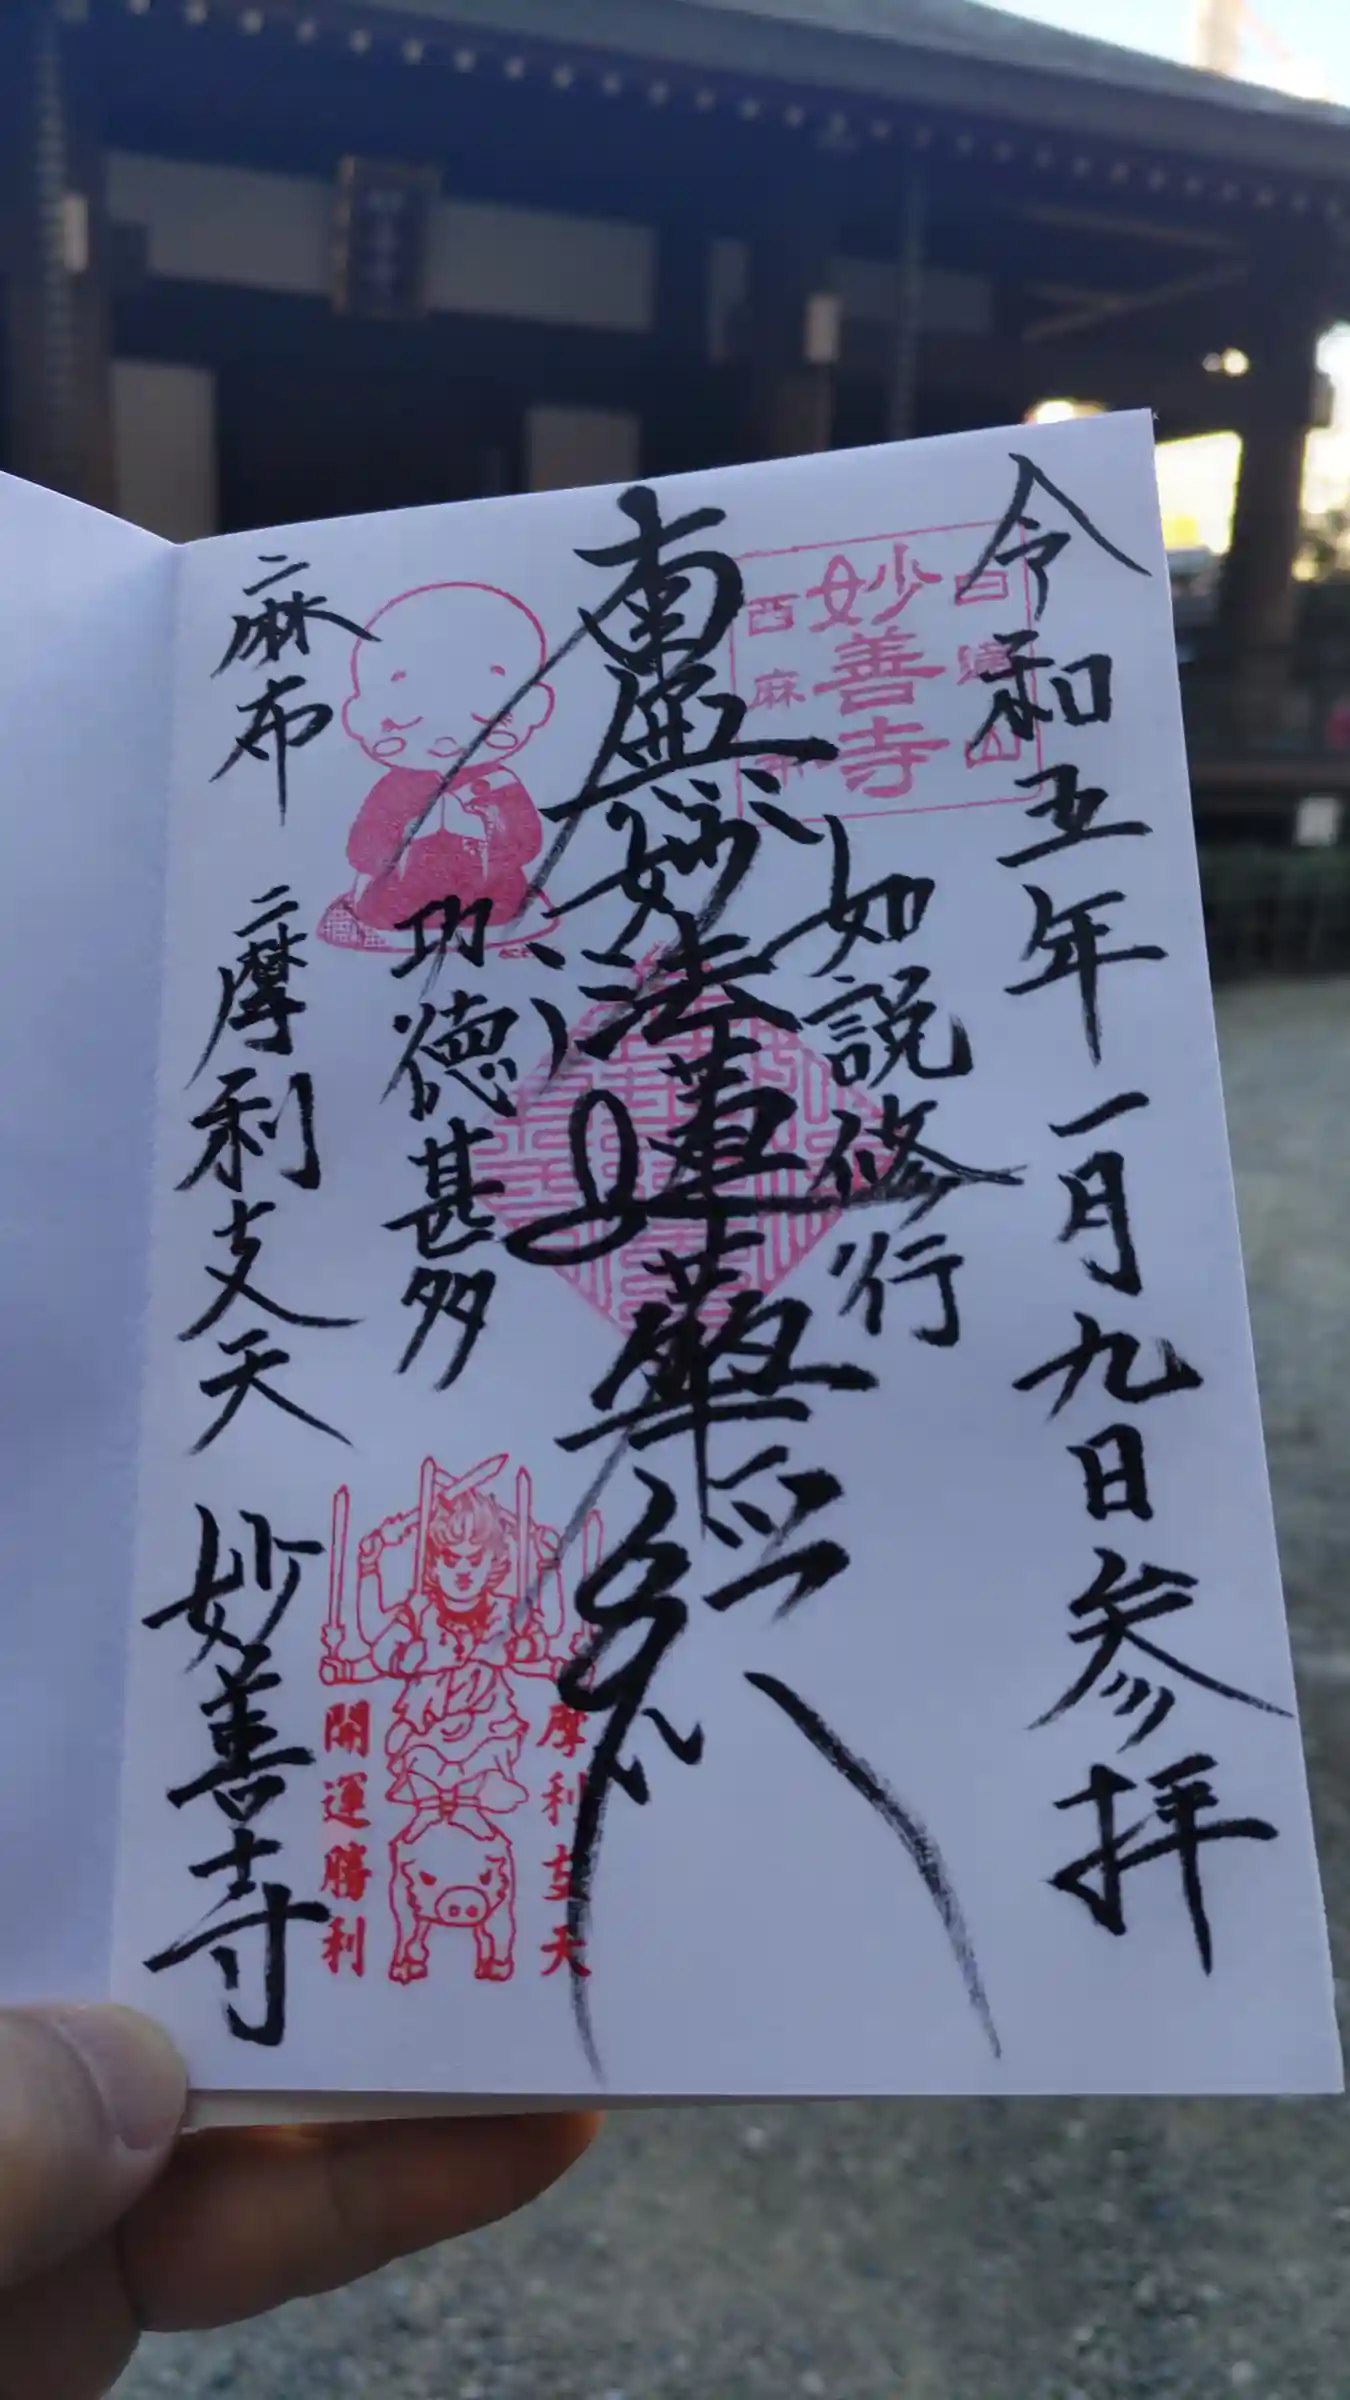 令和五年一月九日参拝
妙善寺
西麻布
如説修行
南無妙法蓮華経
功徳甚多
摩利支天
開運勝利
麻布
摩利支天
妙善寺